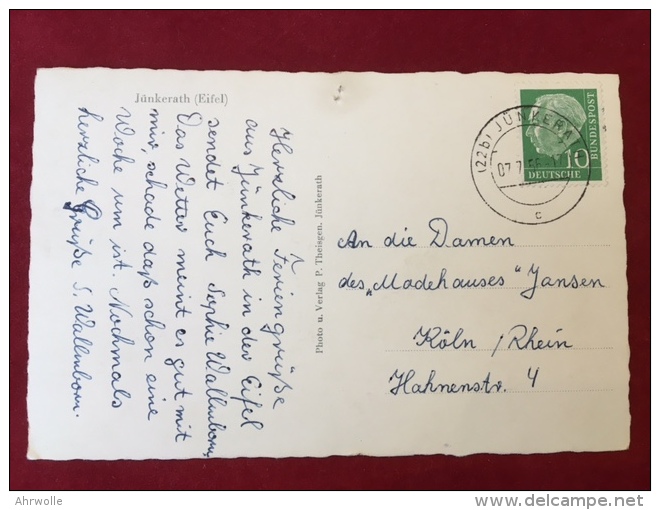 Jünkerath (Eifel)
Herzliche Feriengrüße
aus Jünkerath in der Eifel
sendet Euch Sophie Wallenborn,
Das Wetter meint es gut mit
mir, schade daß schon eine
Woche um ist. Nochmals
herzliche Grüße S. Wallenborn.
Photo u. Verlag P. Theisgen, Jünkerath
(22b) JÜNKERA
07.7.56
c
10
DEUTSCHE
BUNDESPOST
An die Damen
des „Modehauses" Jansen
Köln / Rhein
Hahnenstr. 4
Ahrwolle
delcampe.net